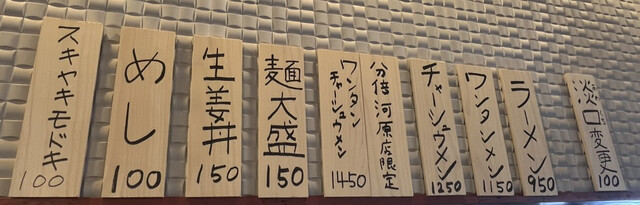 淡口変更
100
ラーメン
950
ワンタンメン
1150
チャーシュウメン
1250
分倍河原店限定
ワンタン
チャーシュウメン
1450
麺大盛
150
生姜丼
150
めし
100
スキヤキモドキ
100